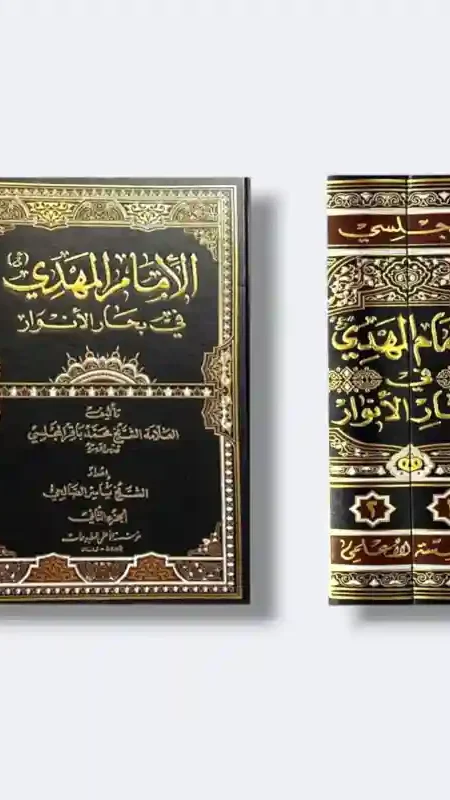 الإمام المهدي (عج)
في بحار الأنوار
تأليف
العلامة الشيخ محمد باقر المجلسي
إعداد
الشيخ ياسر الصالحي
الجزء الثاني
مؤسسة الأعلمي للمطبوعات
جلسي
مام المهدي
في
حار الأنوار
٢
سة الأعلمي